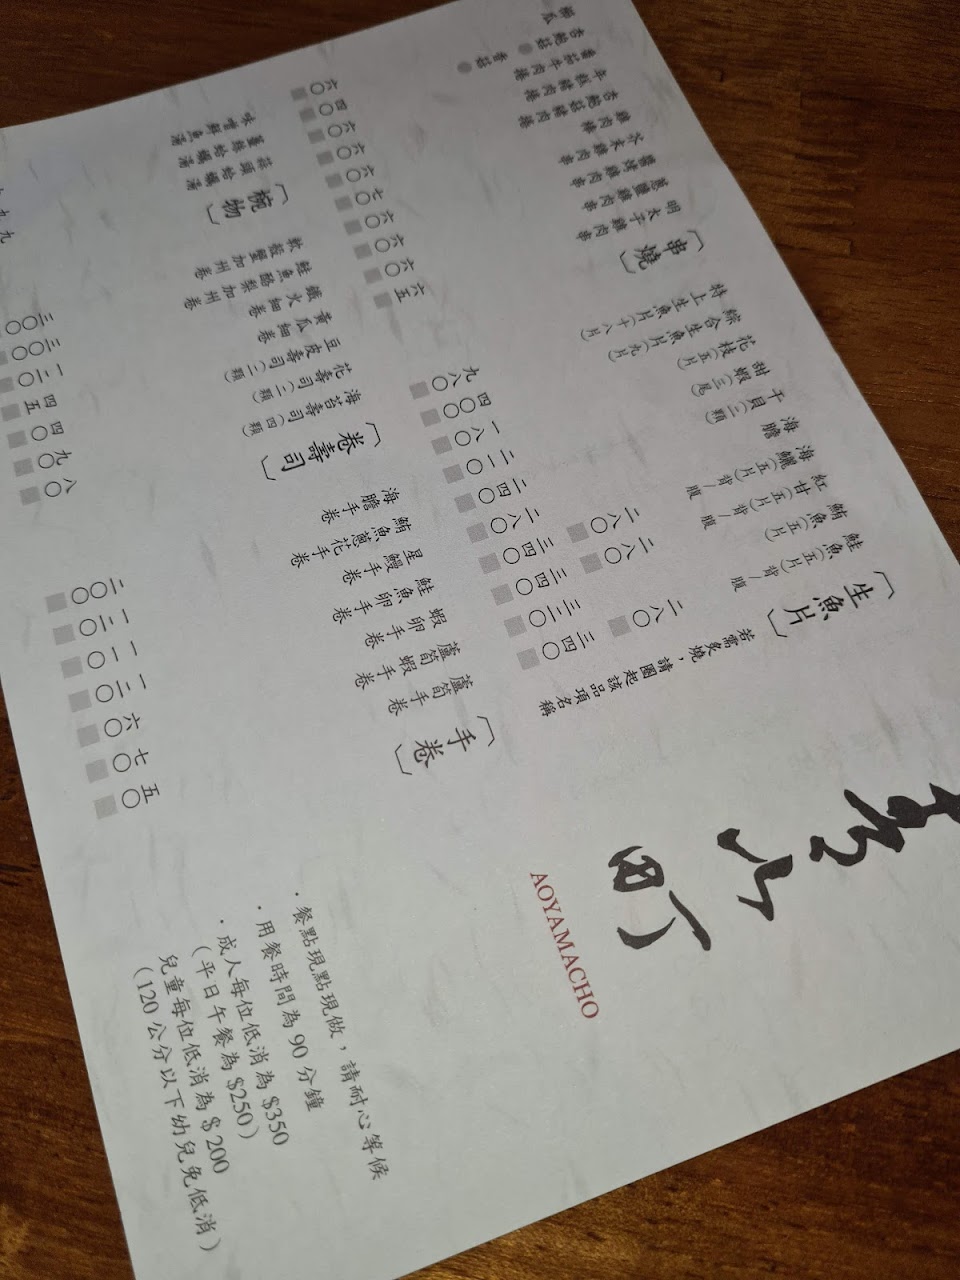 青山町
AOYAMACHO
〔生魚片〕
若需炙燒，請圈起該品項名稱
鮭魚(五片) 背/腹
鮪魚(五片)
紅甘(五片) 背/腹
海鱺(五片) 背/腹
海膽
干貝(三顆)
甜蝦(三尾)
花枝(五片)
綜合生魚片(九片)
特上生魚片(十八片)
三四〇
二八〇
三三〇
三四〇
二八〇
三四〇
二八〇
二八〇
二四〇
二二〇
一八〇
四〇〇
九八〇
〔串燒〕
明太子雞肉串
蔥鹽雞肉串
醬烤雞肉串
芥末雞肉串
雞肉棒
杏鮑菇豬肉捲
年糕豬肉捲
番茄牛肉捲
杏鮑菇
香菇
六五
六〇
六〇
七〇
六〇
六〇
四〇
六〇
〔手卷〕
蘆筍手卷
蘆筍蝦手卷
蝦卵手卷
鮭魚卵手卷
星鰻手卷
鮪魚蔥花手卷
海膽手卷
五〇
七〇
六〇
一三〇
一一〇
一三〇
二〇〇
〔卷壽司〕
海苔壽司(四顆)
花壽司(二顆)
豆皮壽司(二顆)
黃瓜細卷
鐵火細卷
鮭魚酪梨加州卷
軟殼蟹加州卷
八〇
九〇
四〇
四五
一二〇
〔椀物〕
蒜頭蛤蠣湯
薑絲蛤蠣湯
味噌鮮魚湯
・餐點現點現做，請耐心等候
・用餐時間為90分鐘
・成人每位低消為$350
(平日午餐為$250)
兒童每位低消為$200
(120公分以下幼兒免低消)